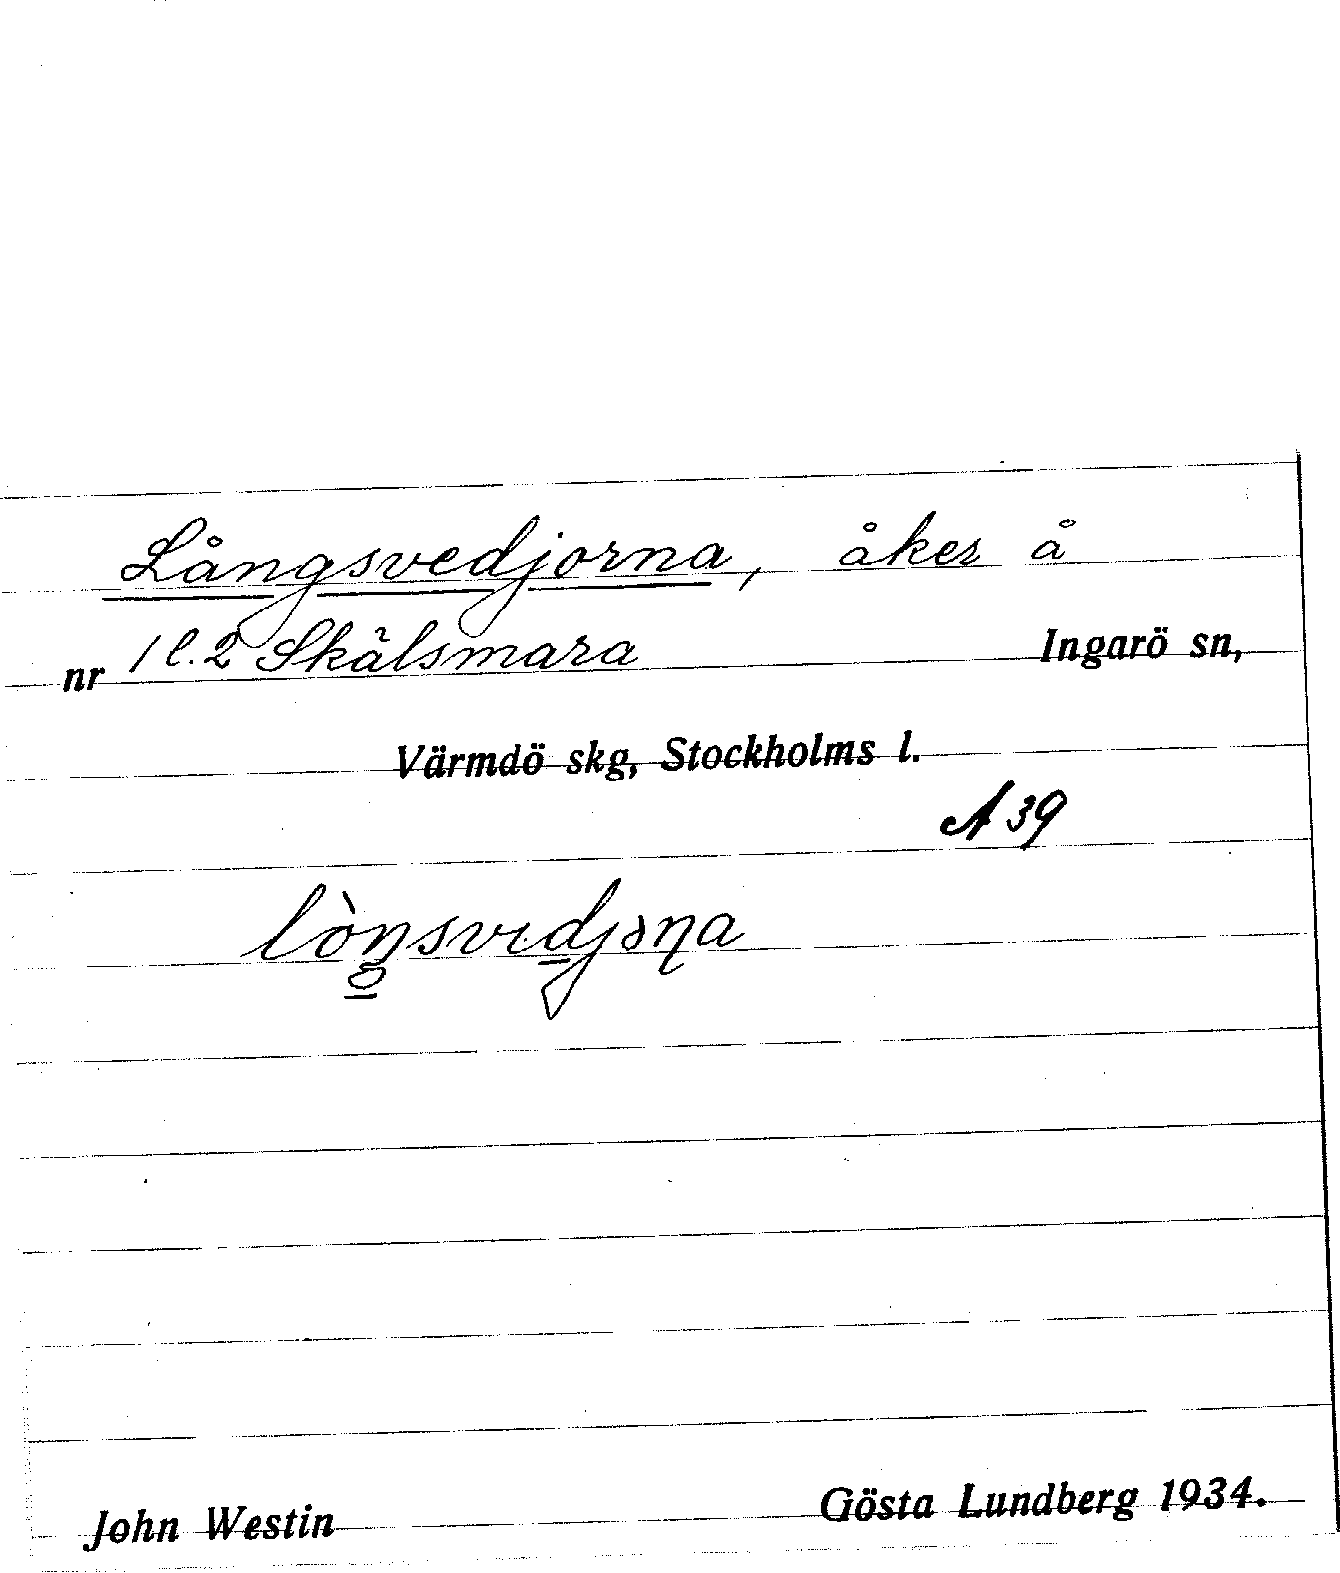 Långsvedjorna, åker å
nr 1 l. 2 Skälsmara Ingarö sn,
Värmdö skg, Stockholms l.
A 39
lòŋsvıdjəɳa
John Westin Gösta Lundberg 1934.